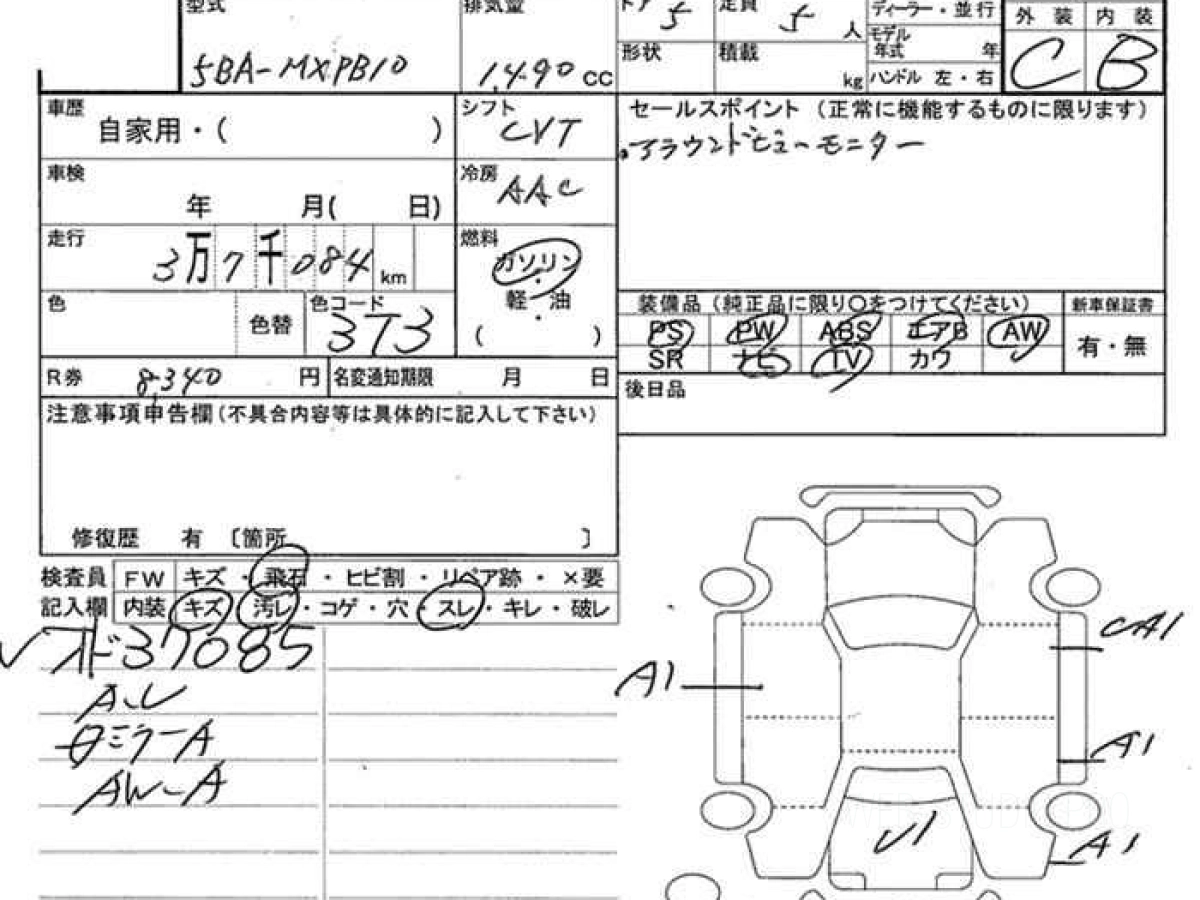 型式 排気量 ドア 5 定員 5 人 ディーラー・並行 外装 内装
5BA-MXPB10 1,490 cc 形状 積載 kg モデル年式 年 C B
ハンドル 左・右
車歴 自家用・( ) シフト CVT セールスポイント (正常に機能するものに限ります)
・アラウンドビューモニター
車検 年 月( 日) 冷房 AAC
走行 3万7千084 km 燃料 ガソリン
軽・油
・
( )
色 色替 色コード 3T3
装備品 (純正品に限り○をつけてください) 新車保証書
PS PW ABS エアB AW 有・無
SR ナビ TV カワ
R券 8,340 円 名変通知期限 月 日 後日品
注意事項申告欄(不具合内容等は具体的に記入して下さい)
修復歴 有 〔箇所 〕
検査員 FW キズ・飛石・ヒビ割・リペア跡・×要
記入欄 内装 キズ・汚レ・コゲ・穴・スレ・キレ・破レ
オド37085
A・U
ミラーA
AW-A
A1
A1
A1
U1